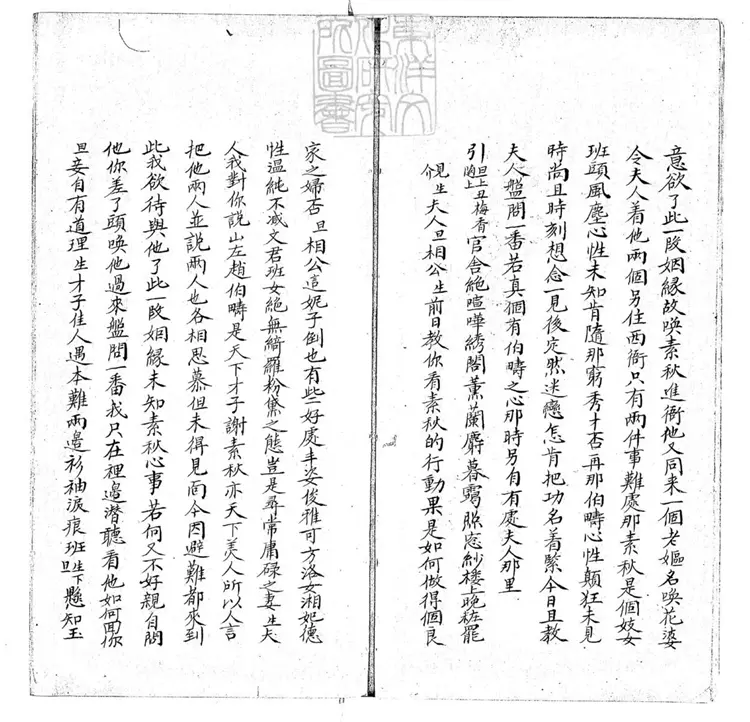 意欲了此一段姻緣故喚素秋進衙他又同来一個老嫗名喚花婆
令夫人着他兩個另住西衙只有兩件事難處那素秋是個妓女
班頭風塵心性未知肯隨那窮秀才否再那伯疇心性顛狂未見
時尚且時刻想念一見後定然迷戀怎肯把功名着緊今日且教
夫人盤問一番若真個有伯疇之心那時另自有處夫人那里
引 旦上丑梅香随上 官舍絶喧嘩綉閣薰蘭麝暮靄照窓紗樓上晚粧罷
介見生夫人旦相公生前日教你看素秋的行動果是如何做得個良
家之婦否旦相公這妮子倒也有些好處丰姿俊雅可方洛女湘妃德
性温純不减文君班女絶無綺羅粉黛之態豈是尋常庸碌之妻生夫
人我對你說山左趙伯疇是天下才子謝素秋亦天下美人所以人言
把他兩人並說兩人也各相思慕但未得見面今因避難都來到
此我欲待與他了此一段姻緣未知素秋心事若何又不好親自問
他你差了頭喚他過來盤問一番我只在裡邊潜聽看他如何回你
旦妾自有道理生才子佳人遇本難兩邊衫袖淚痕班生下旦懸知玉